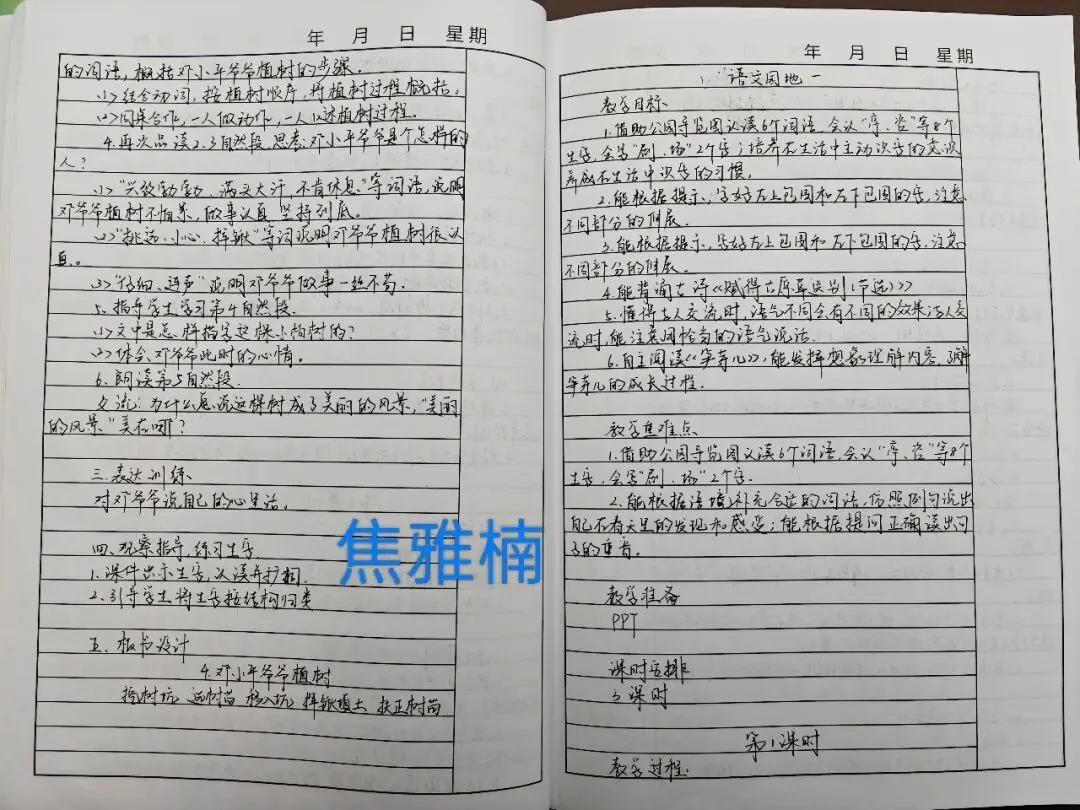 年 月 日 星期
的词语，概括邓小平爷爷植树的步骤.
(1)结合动词，按植树顺序，将植树过程概括。
(2)同桌合作，一人做动作，一人口述植树过程。
4.再次品读2.3自然段.思考：邓小平爷爷是个怎样的
人？
(1)"兴致勃勃、满头大汗、不肯休息"等词语，说明
邓爷爷植树不怕累，做事认真 坚持到底。
(2)"挑选、小心、挥锹"等词说明邓爷爷植树很认
真。
(3)"仔细、连声"说明邓爷爷做事一丝不苟.
5.指导学生学习第4自然段.
(1)文中是怎样描写这棵小柏树的？
(2)体会邓爷爷此时的心情。
6.朗读第5自然段.
交流：为什么说这棵树成了美丽的风景，"美丽
的风景"美在哪？
三.表达训练
对邓爷爷说自己的心里话。
四、观察指导，练习生字
1.课件出示生字，认读并扩词.
2.引导学生将生字按结构归类
五、板书设计
4.邓小平爷爷植树
挖树坑 选树苗 移入坑 挥锹填土 扶正树苗
焦雅楠
年 月 日 星期
语文园地一
教学目标
1.借助公园导览图认读6个词语，会认"序、咨"等8个
生字，会写"剧、场"2个字；培养在生活中主动识字的意识
养成在生活中识字的习惯.
2.能根据提示，写好左上包围和左下包围的字，注意
不同部分的伸展.
3.能根据提示，写好左上包围和左下包围的字，注意
不同部分的伸展.
4.能背诵古诗《赋得古原草送别（节选）》
5.懂得与人交流时，语气不同会有不同的效果；与人交
流时，能注意用恰当的语气说话.
6.自主阅读《笋芽儿》，能发挥想象，理解内容，了解
笋芽儿的成长过程.
教学重难点
1.借助公园导览图认读6个词语，会认"序、咨"等8个
生字，会写"剧、场"2个字.
2.能根据语境补充合适的词语，仿照例句说出
自己在春天里的发现和感受；能根据提问正确读出句
子的重音.
教学准备
PPT
课时安排
3课时
第1课时
教学过程：